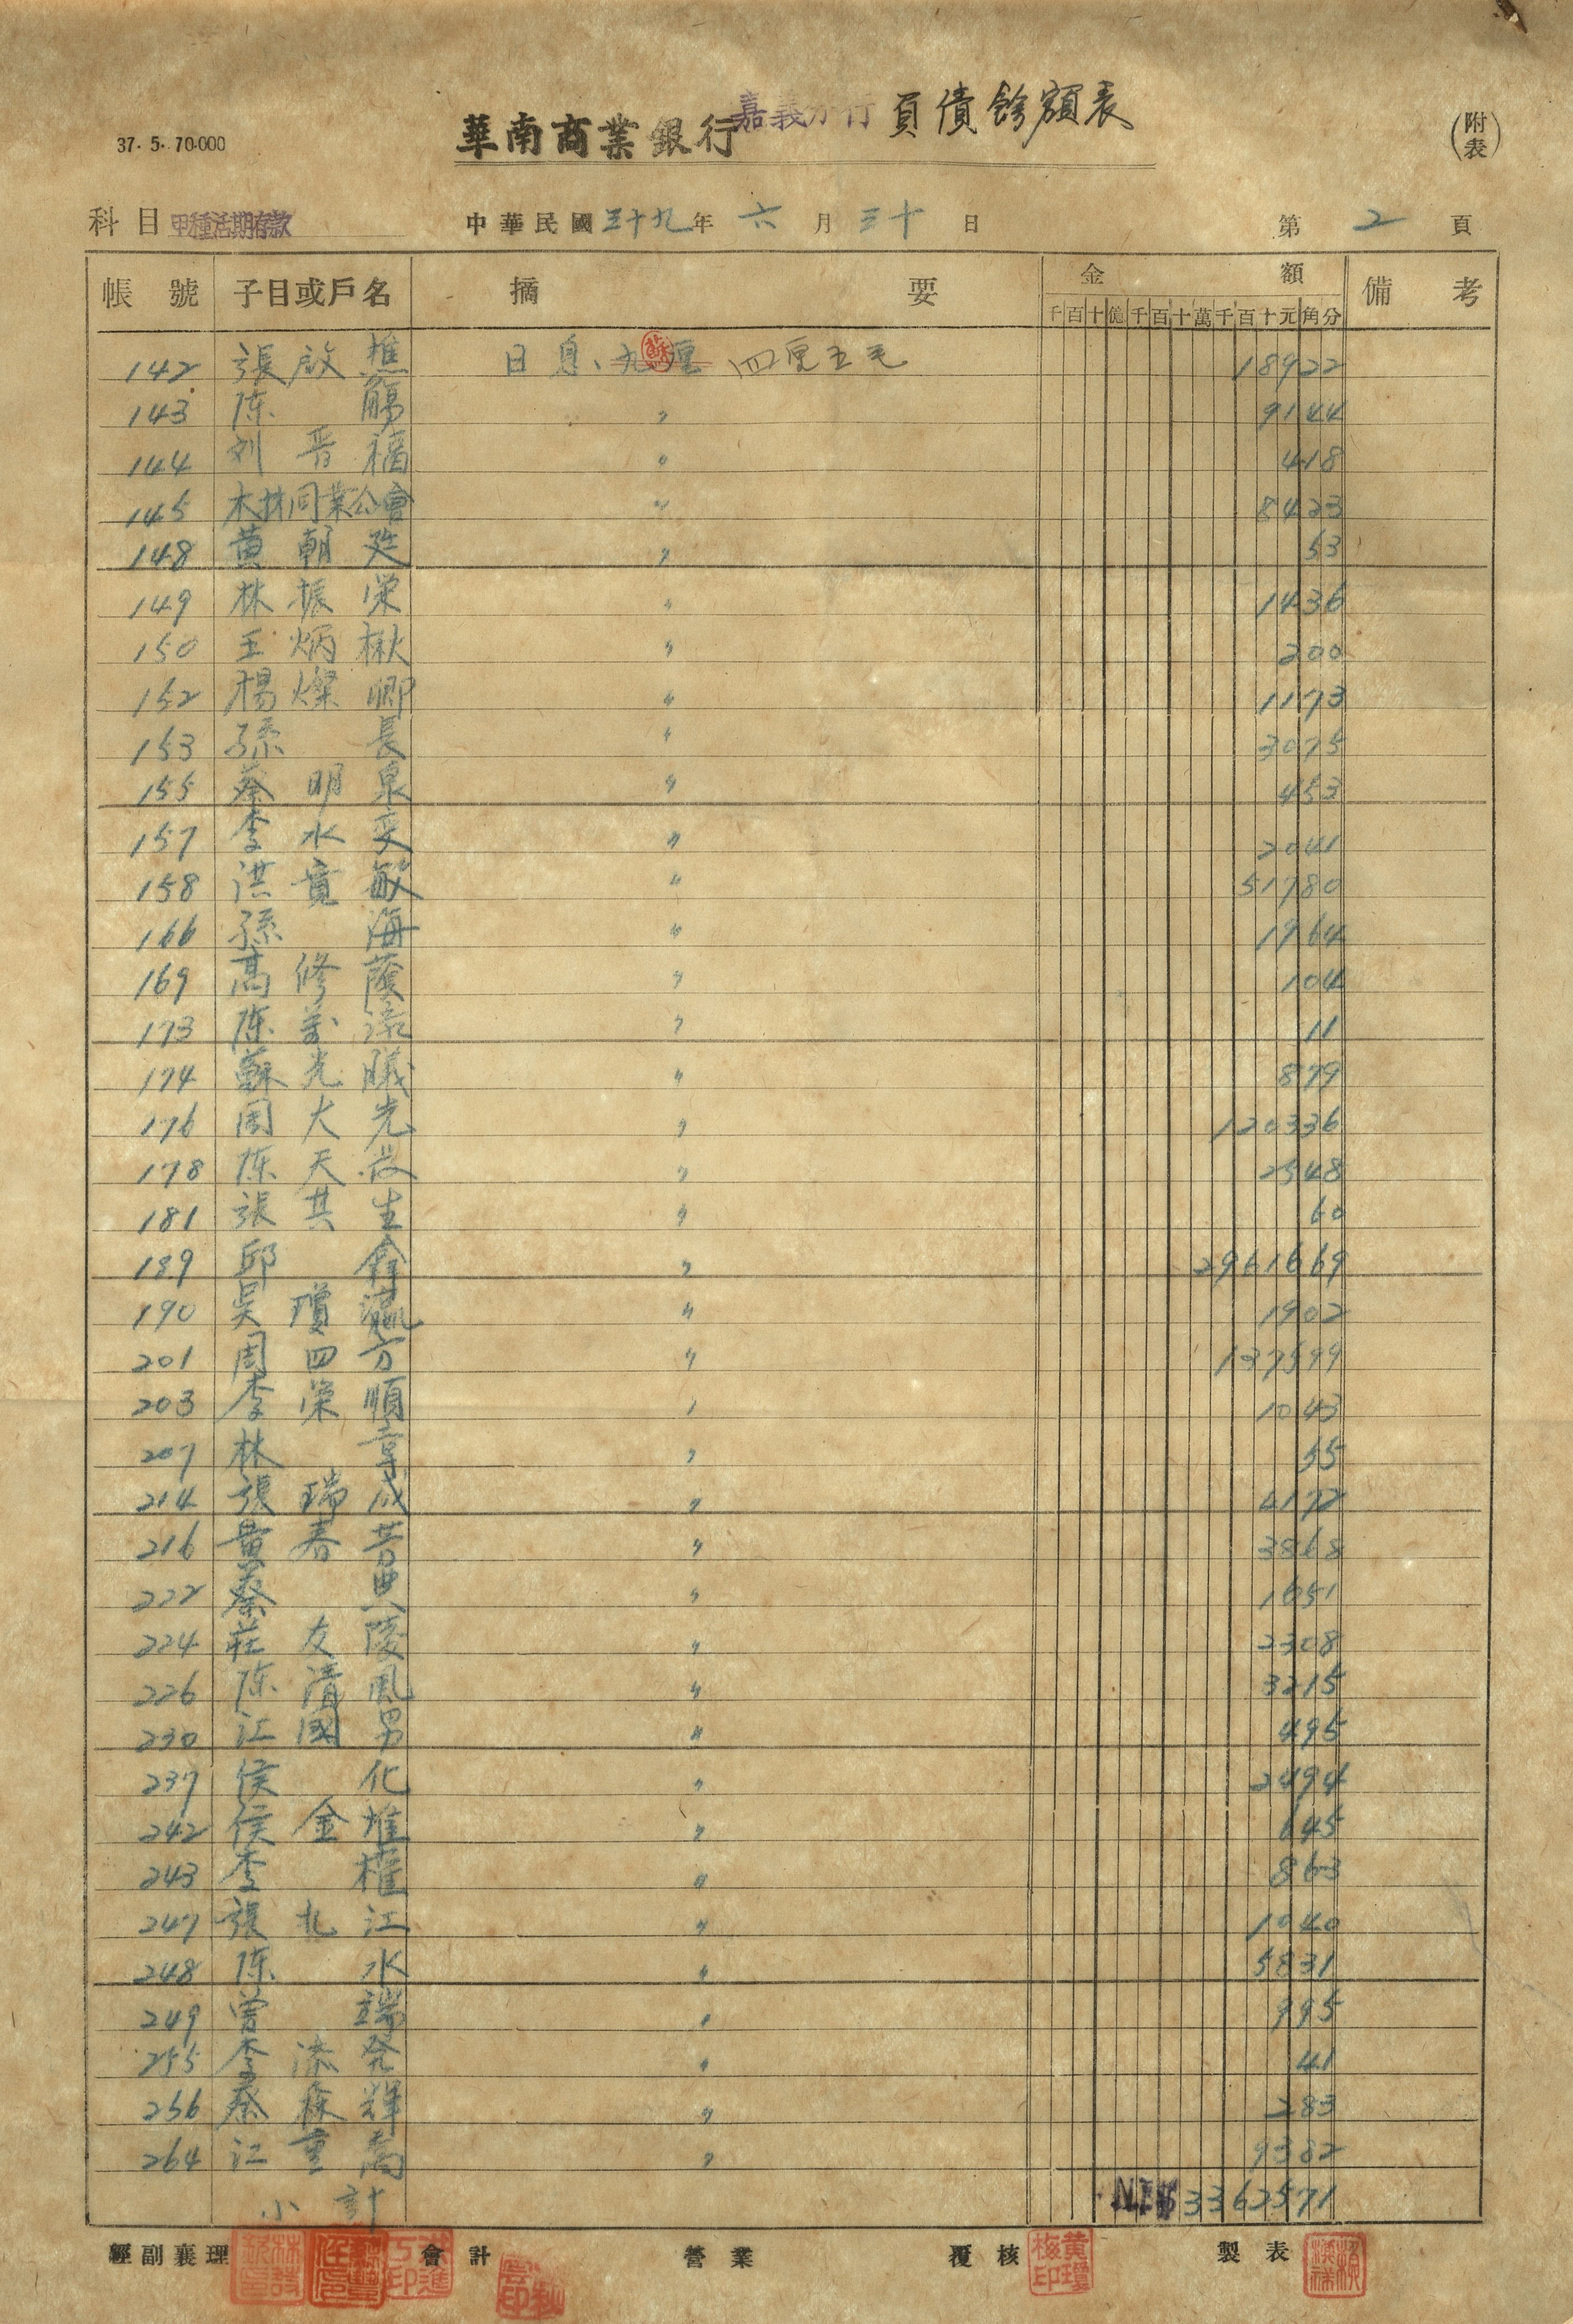 37. 5. 70.000
華南商業銀行嘉義分行 負債餘額表
(附表)
科目 甲種活期存款 中華民國 三十九 年 六 月 三十 日 第 2 頁
帳號 子目或戶名 摘要 金額 備考
千百十億千百十萬千百十元角分
142 張啟 日息、九厘 四厘五毛 18922
143 陈觴 〃 9144
144 刘晋福 〃 418
145 木材同業公會 〃 8423
148 黃朝 〃 53
149 林振栄 〃 1436
150 王炳楸 〃 200
152 楊燦卿 〃 1173
153 孫長 〃 3075
155 蔡明泉 〃 453
157 李水 〃 2041
158 洪寬敏 〃 51780
166 孫海 〃 1964
169 高修蔭 〃 104
173 陈 〃 11
174 蘇光曦 〃 879
176 周大光 〃 120336
178 陈天 〃 2548
181 張其生 〃 60
189 邱 〃 2961669
190 吳瓊瀛 〃 1902
201 周四方 〃 137599
203 李榮順 〃 1043
207 林章 〃 55
214 張瑞成 〃 4172
216 黃春芳 〃 3868
222 蔡典 〃 1651
224 莊友陵 〃 2308
226 陈清風 〃 3215
230 江國男 〃 495
237 侯化 〃 2494
242 侯金堆 〃 645
243 李權 〃 863
247 張北江 〃 1040
248 陈水 〃 5831
249 曾端 〃 995
255 李添発 〃 41
256 蔡森輝 〃 283
264 江重嵩 〃 9382
小計 NT$ 3362571
經副襄理 會計 營業 覆核 黃瓊梅印 製表